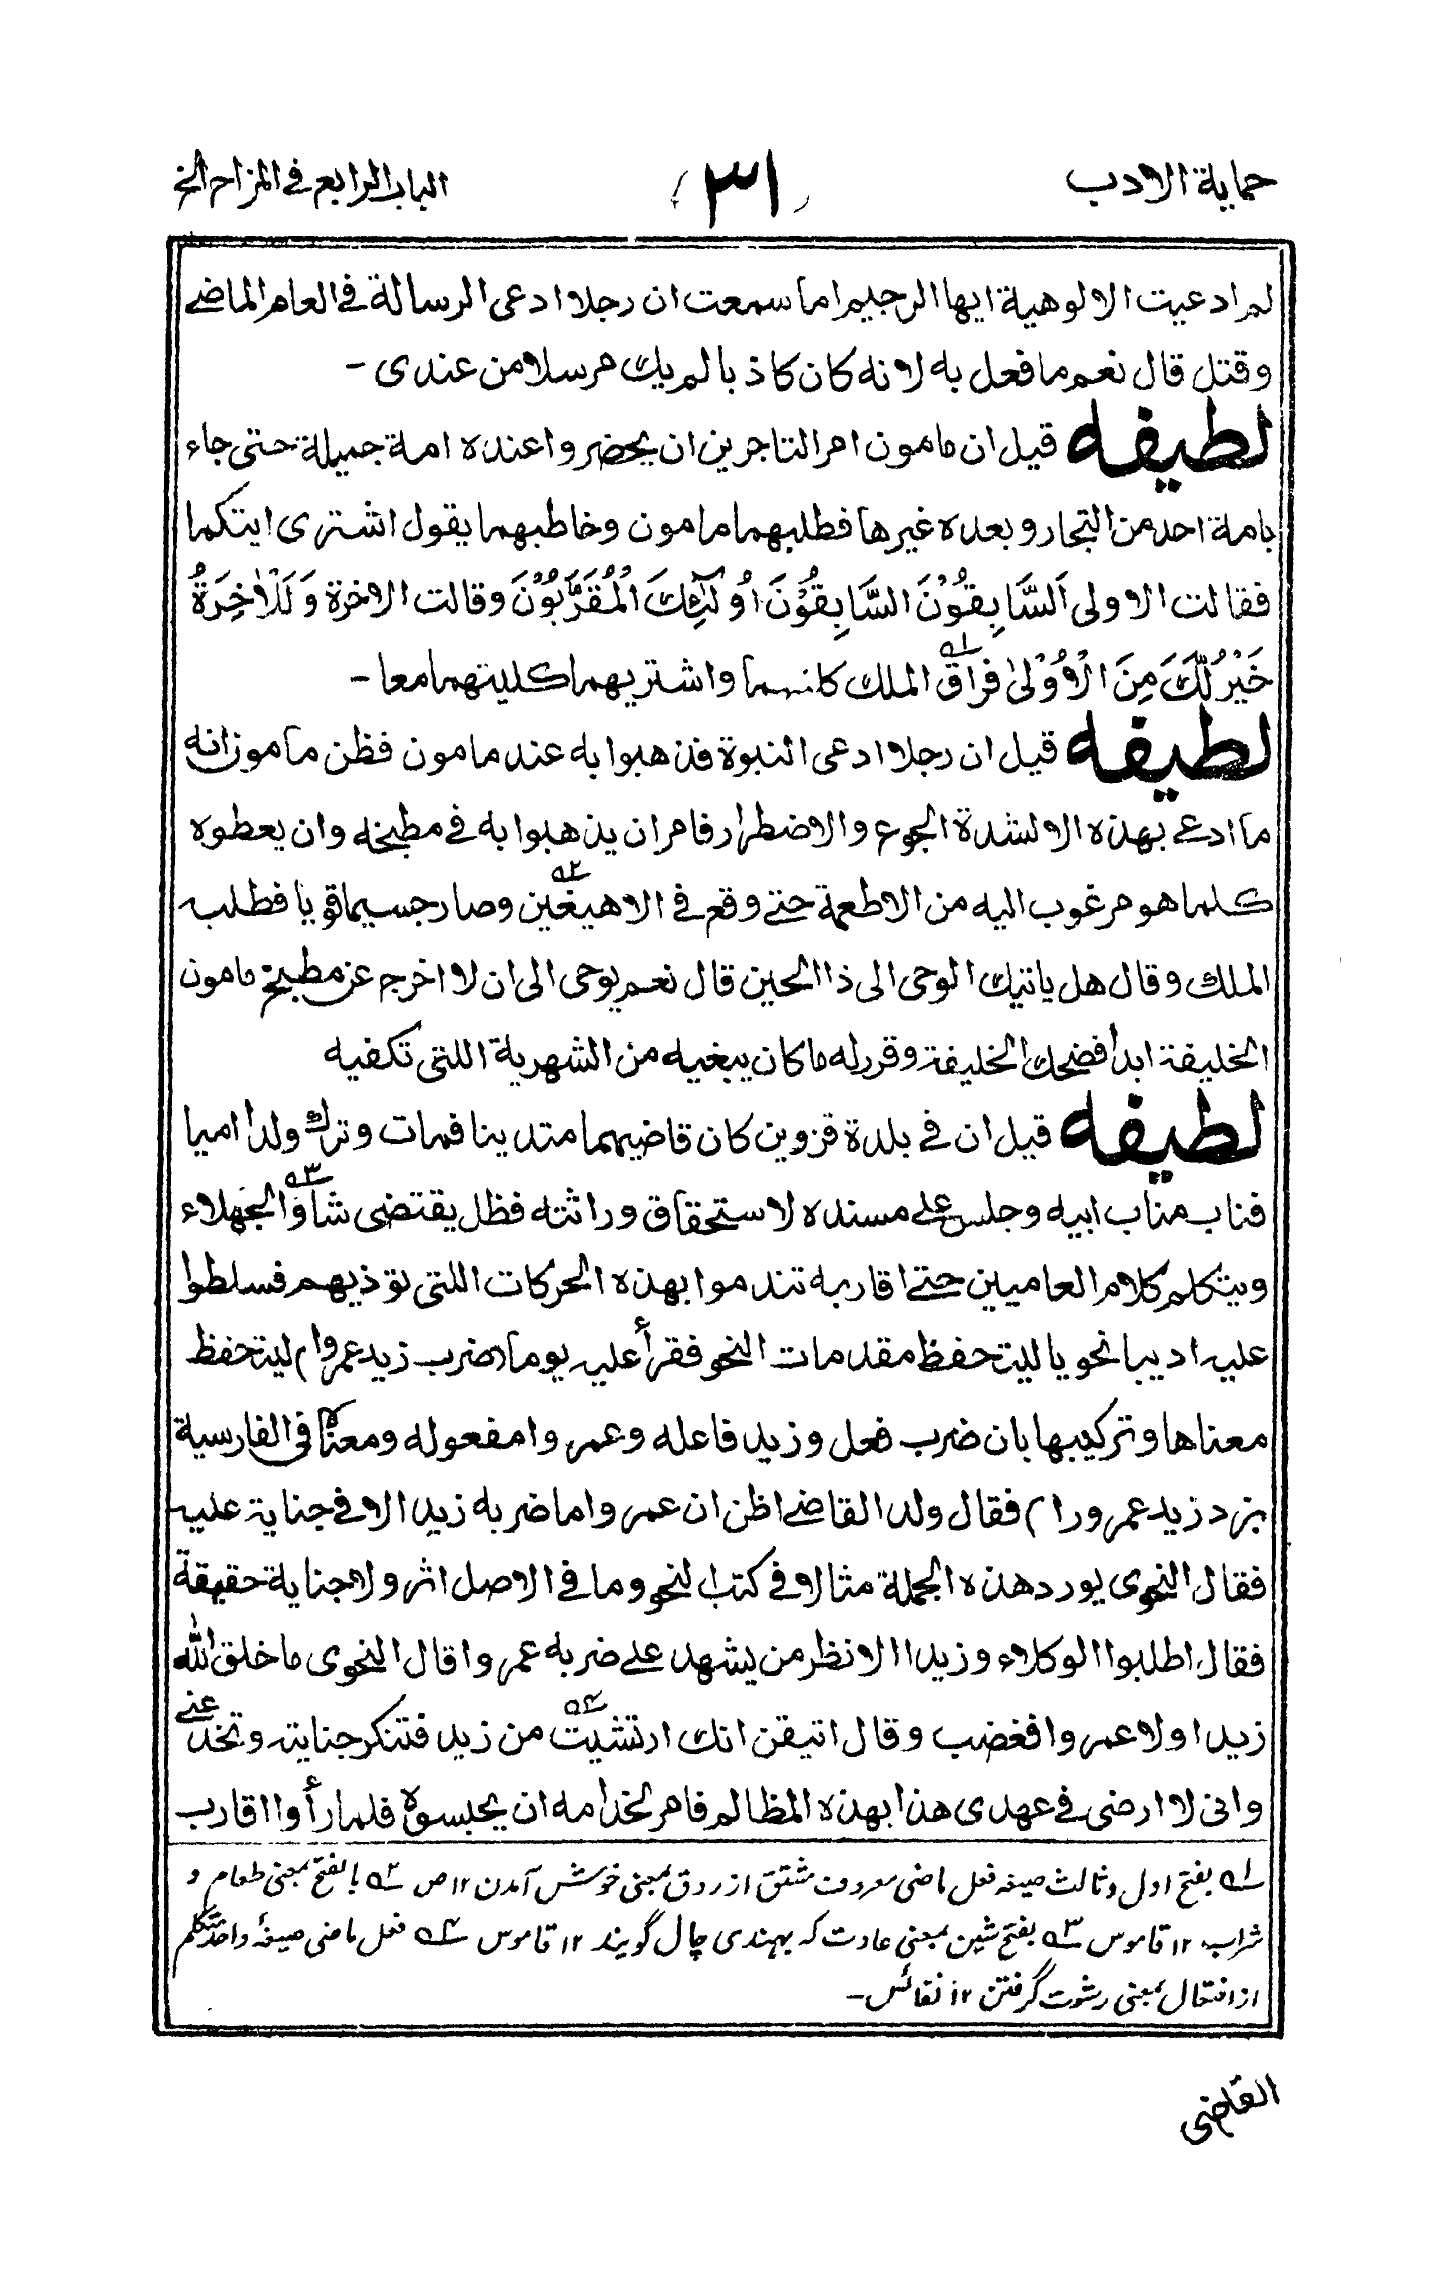 حماية الادب (٣١) الباب الرابع في المزاح الخ
لم ادعيت الالوهية ايها الرجيم اما سمعت ان رجلا ادعى الرسالة في العام الماضے
وقتل قال نعم ما فعل به لانه كان كاذبا لم يك مرسلا من عندى -
لطيفه قيل ان مامون امر التاجرين ان يحضروا عنده امة جميلة حتى جاء
بامة احد من التجار و بعده غيرها فطلبهما مامون وخاطبهما يقول اشترى ايتكما
فقالت الاولى اَلسَّابِقُوْنَ السَّابِقُوْنَ اُولٰٓئِكَ الْمُقَرَّبُوْنَ وقالت الاخرة وَلَلْاٰخِرَةُ
خَيْرٌ لَّكَ مِنَ الْاُوْلىٰ فراق ۱ه الملك كلنهما واشتريهما كليتهما معا -
لطيفه قيل ان رجلا ادعى النبوة فذهبوا به عند مامون فظن مامون انه
ما ادعے بهذه الا لشدة الجوع والاضطرار فامر ان يذهبوا به في مطبخه وان يعطوه
كلما هو مرغوب اليه من الاطعمة حتے وقع في الاهيغين ۲ه وصار جسيما قويا فطلب
الملك وقال هل ياتيك الوحى الى ذا الحين قال نعم يوحى الى ان لا اخرج عن مطبخ مامون
الخليفة ابدا فضحك الخليفة وقرر له ما كان يبغيه من الشهرية اللتى تكفيه
لطيفه قيل ان في بلدة قزوين كان قاضيهما متدينا فمات وترك ولدا اميا
فناب مناب ابيه وجلس على مسنده لاستحقاق وراثته فظل يقتضى شاو ۳ه الجهلاء
ويتكلم كلام العاميين حتے اقاربه تندموا بهذه الحركات اللتى تؤذيهم فسلطوا
عليه اديبا نحويا لليتحفظ مقدمات النحو فقرأ عليه يوما (ضرب زيد عمروا) ليتحفظ
معناها وتركيبها بان ضرب فعل وزيد فاعله وعمروا مفعوله ومعناه في الفارسية
بزد زيد عمرو را) فقال ولد القاضے اظن ان عمروا ما ضربه زيد الا في جناية عليه
فقال النحوى يورد هذه الجملة مثالا في كتب النحو وما في الاصل اثر ولا جناية حقيقة
فقال اطلبوا الوكلاء وزيدا الا نظر من يشهد علے ضربه عمروا قال النحوى ما خلق الله
زيدا ولا عمروا فغضب وقال اتيقن انك ارتشيت ۴ه من زيد فتنكر جنايته وتخدعنے
وانى لا ارضى في عهدى هذا بهذه المظالم فامر لخدامه ان يحبسوه فلما رأوا اقارب
۱ه بفتح اول و ثالث صیغہ فعل ماضی معروف مشتق از روق بمعنی خوش آمدن ۱۲ ص ۲ه بالفتح بمعنی طعام و
شراب ۱۲ قاموس ۳ه بفتح شین بمعنی عادت کہ بہندی چال گویند ۱۲ قاموس ۴ه فعل ماضی صیغۂ واحد متکلم
از افتعال بمعنی رشوت گرفتن ۱۲ نفائس -
القاضى